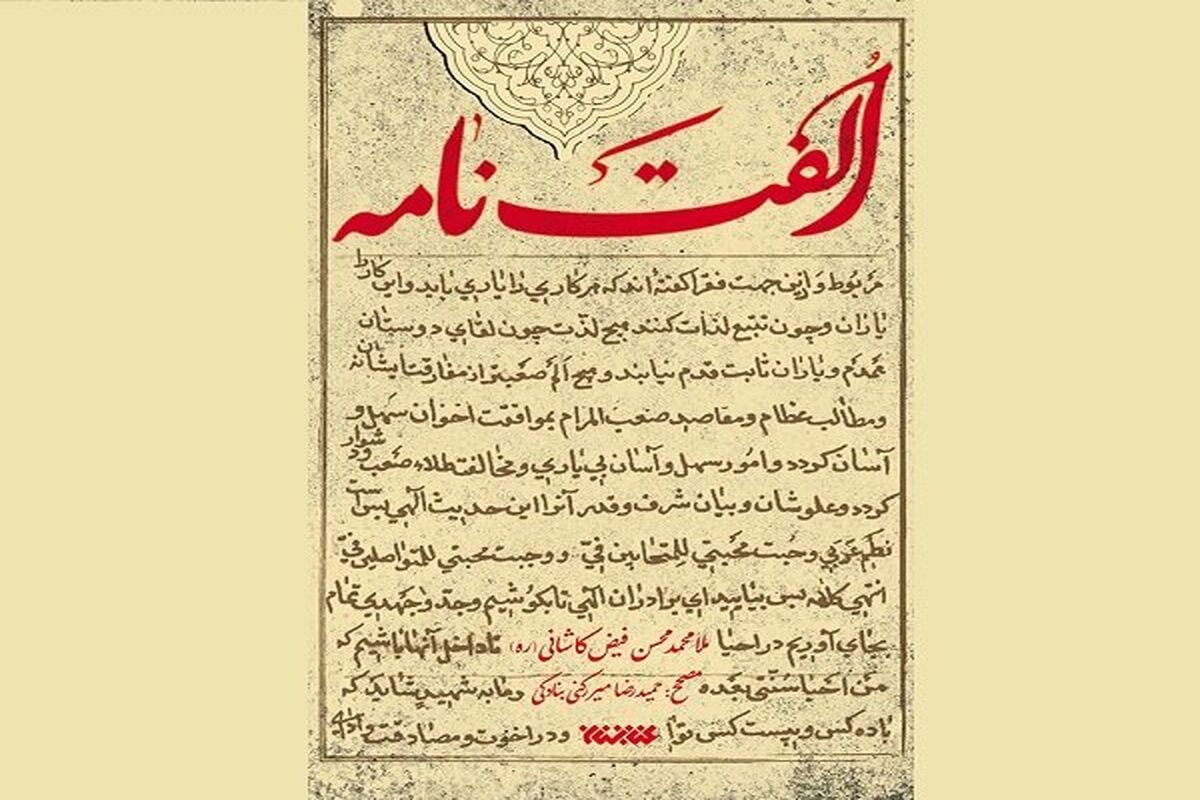 اُلفت نامه
مربوط و ازین جهت فقرا گفته‌اند که هر کاری را یاری باید و این کار را
یاران و چون تتبع لذات کنند هیچ لذت چون لقای دوستان
همدم و یاران ثابت قدم نیابند و هیچ الم صعبتر از مفارقت ایشان نه
و مطالب عظام و مقاصد صعب المرام بموافقت اخوان سهل و
آسان گردد و امور سهل و آسان بی یاری و مخالفت خلاء صعب و دشوار
گردد و علو شان و بیان شرف و قدر آنرا این حدیث الهی بس است
نظم عربی وجبت محبتی للمتحابین فیّ و وجبت محبتی للمتواصلین فیّ
انتهی کلامه پس بیایید ای برادران الهی تا بکوشیم و جدّ و جهدی تمام
بجای آوریم در احیا ملا محمد محسن فیض کاشانی (ره) تا داخل آنها باشیم که
من احیا سنتی بعده مصحح: حمیدرضا میررکنی بنادکی و مابه شهید شاید که
با ده کس و بیست کس توا و در اخوت و مصادقت